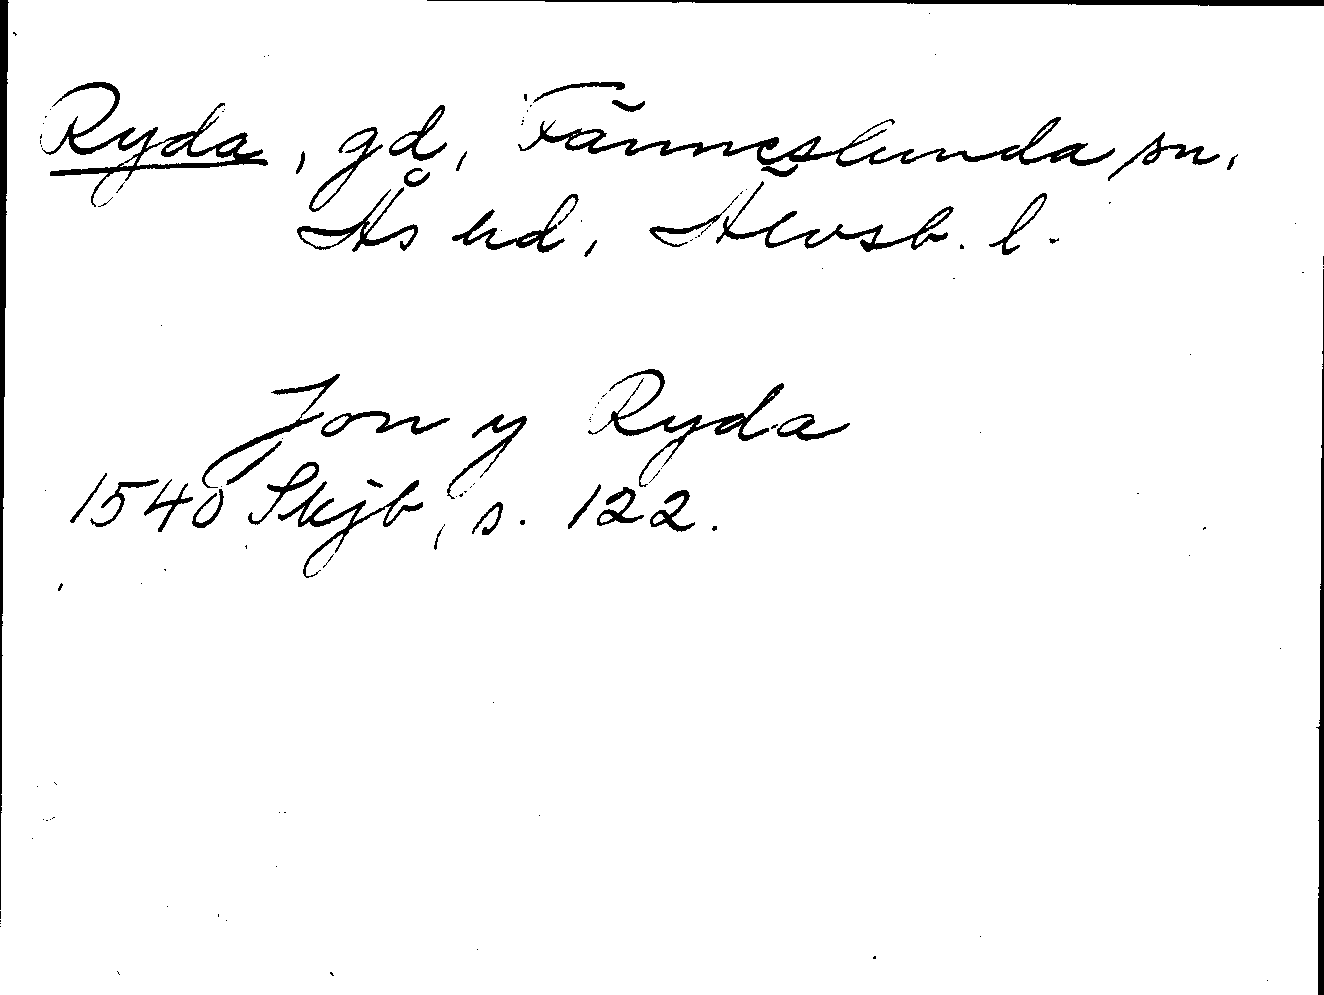 Ryda, gd, Fänneslunda sn,
Ås hd, Älvsb. l.
Jon y Ryda
1540 Skjb, s. 122.